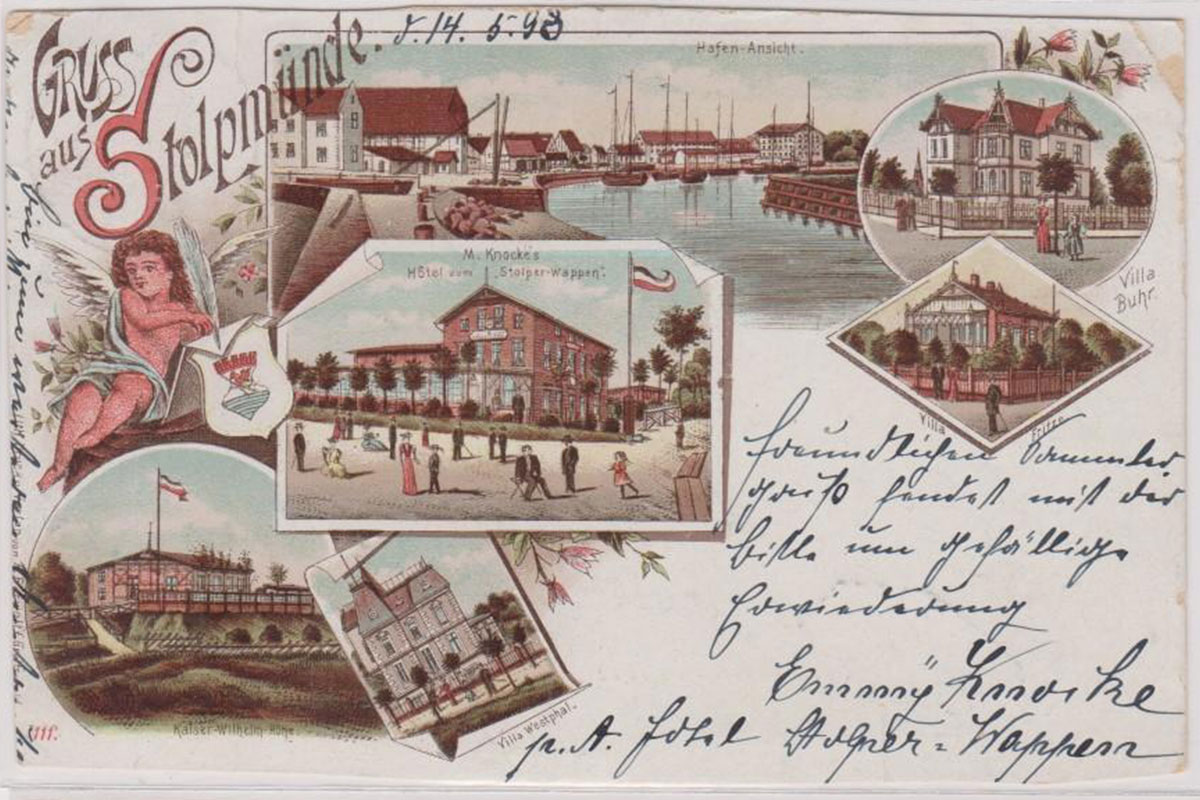 Gruss
aus Stolpmünde.
d. 14. 5. 98
Hafen-Ansicht.
M. Knocke's
Hôtel zum "Stolper-Wappen".
Villa
Buhr.
Villa Fritze
Kaiser-Wilhelm-Höhe
Villa Westphal.
Freundlichen Sammler
gruß sendet mit der
Bitte um gefällige
Erwiederung
Emmÿ Knocke
p. A. Hotel Stolper=Wappen